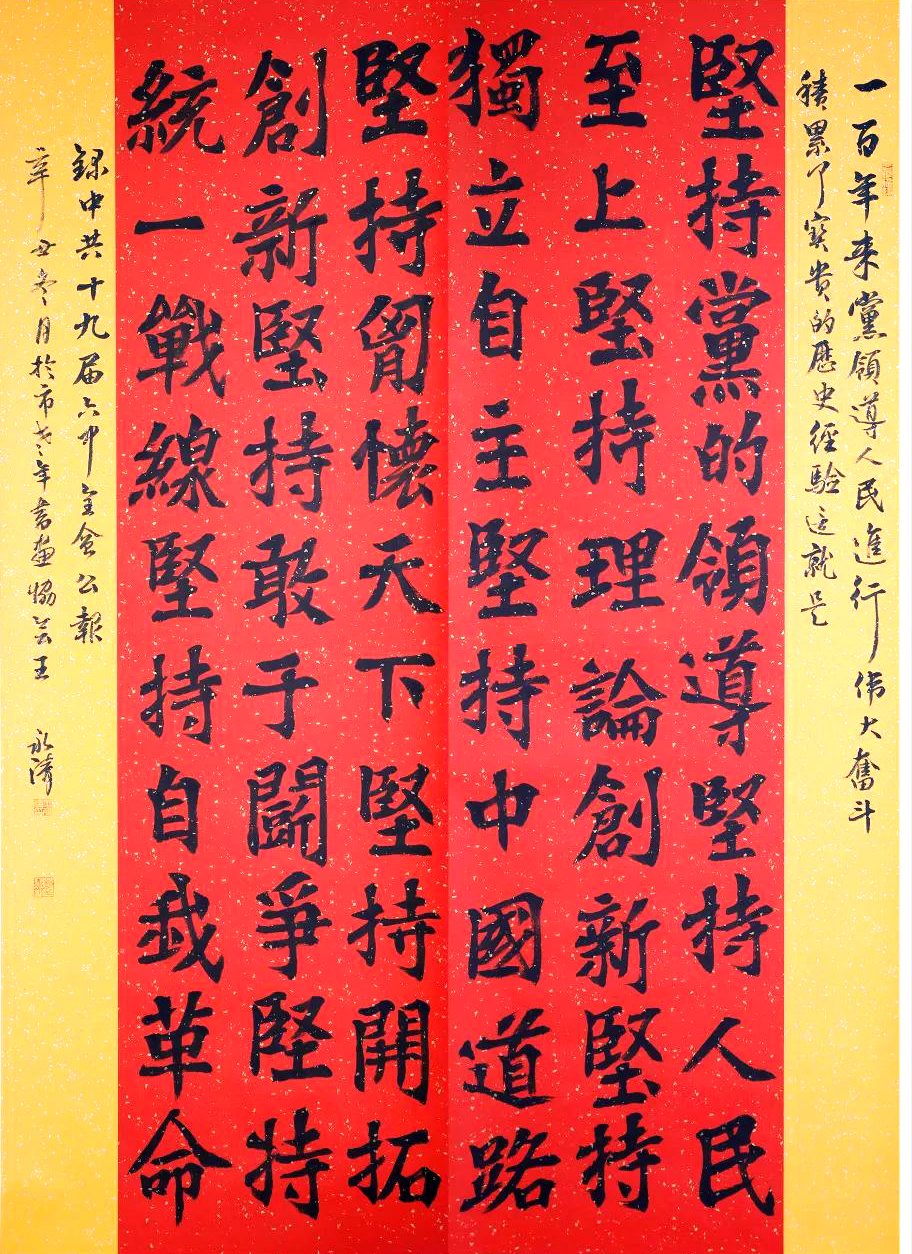 一百年来黨領導人民進行伟大奮斗
積累了寶貴的歷史經驗這就是
堅持黨的領導堅持人民
至上堅持理論創新堅持
獨立自主堅持中國道路
堅持胷懷天下堅持開拓
創新堅持敢于鬭爭堅持
統一戰線堅持自我革命
錄中共十九届六中全會公報
辛丑冬月於市老年書畫協会王永濤